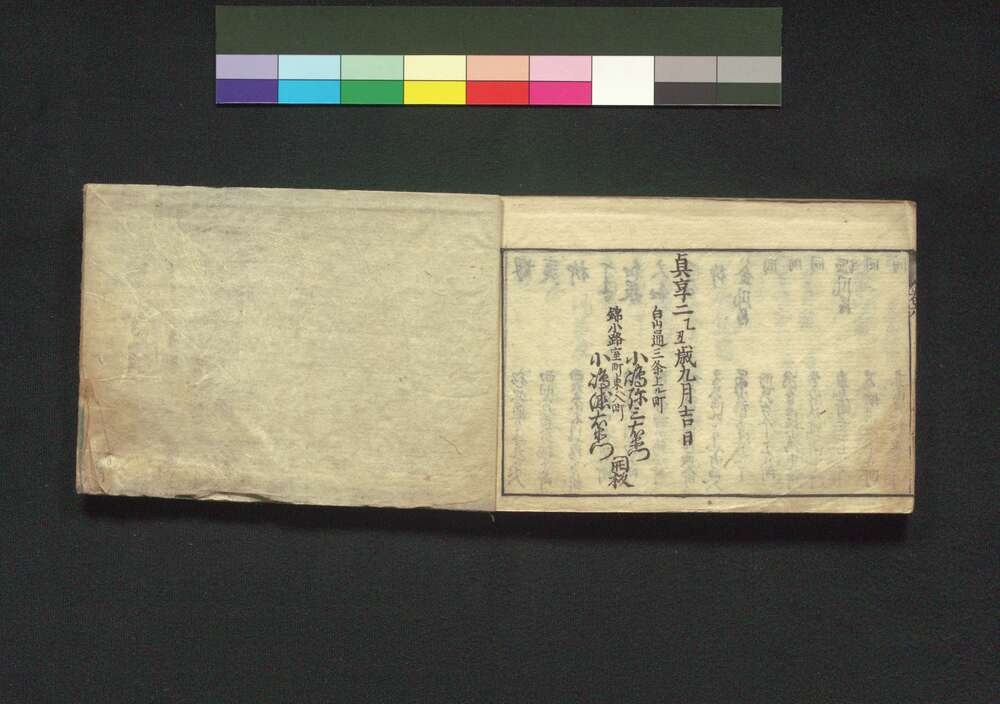 貞享二乙丑歳九月吉日
白山通三条上ル町
小嶋弥三右衛門
錦小路室町東入町
小嶋
右衛門
開板